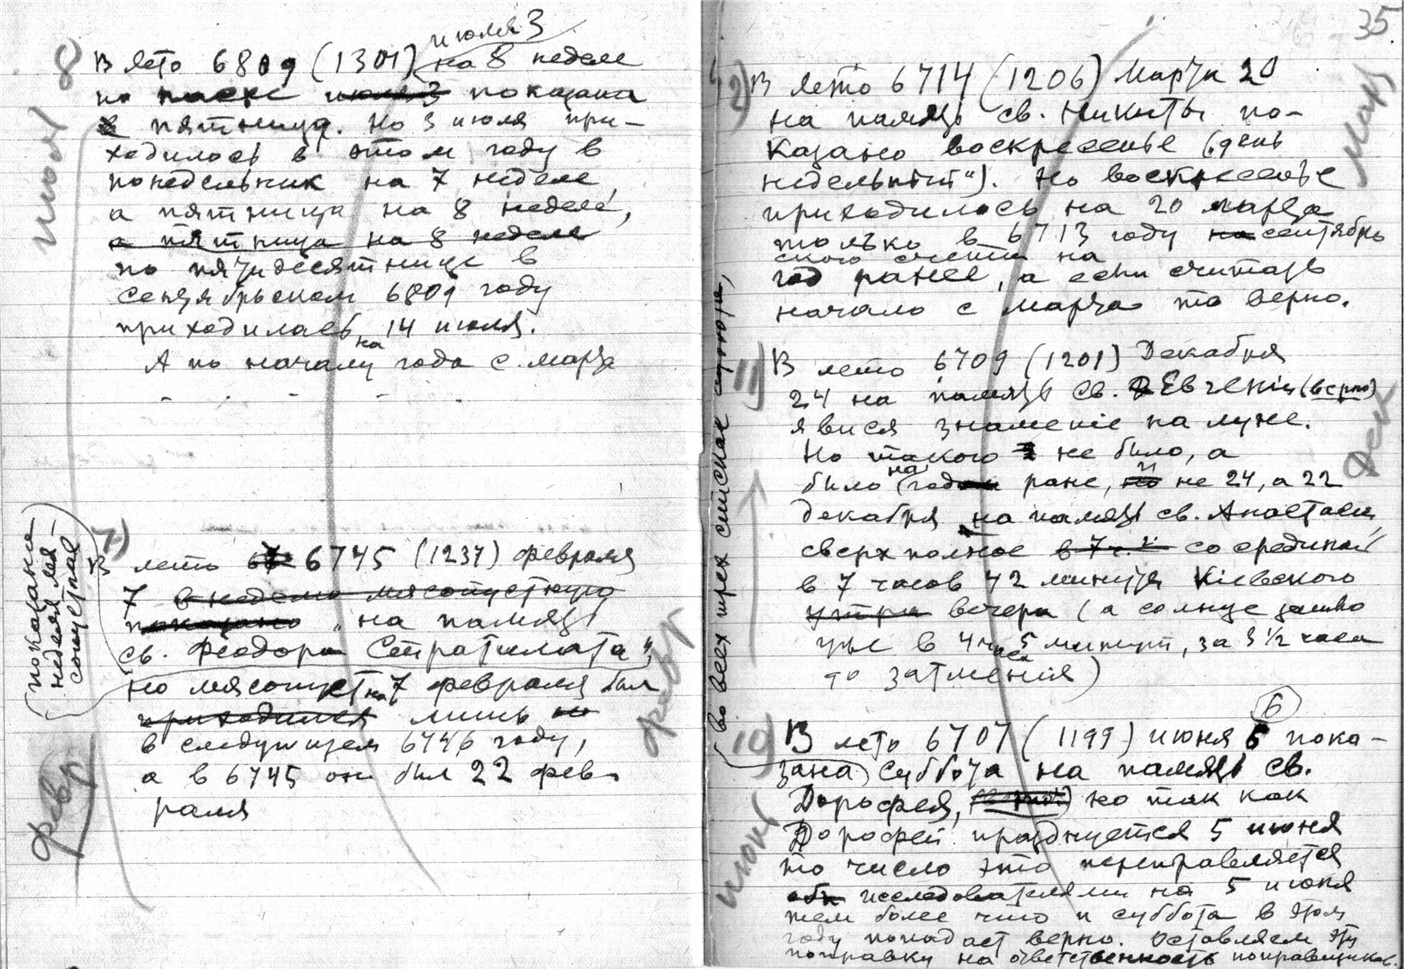 июля 3
8 В лето 6809 (1301) на 8 неделе
по пасхе июля 3 показана
в пятница. Но 3 июля при-
ходилось в этом году в
понедельник на 7 неделе,
а пятница на 8 неделе,
а пятница на 8 неделе
по пятидесятнице в
сентябрьском 6809 году
приходилась на 14 июля.
А по началу года с марта
июля
7) В лето 6745 (1237) февраля
7 в неделю мясопустную
показано "на память
св. Феодора Стратилата",
(показана
неделя мя-
сопустная)
но мясопуст на 7 февраля был
приходился лишь
в следующем 6746 году,
а в 6745 он был 22 фев-
раля
февр
февр
35.
12) В лето 6714 (1206) Марта 20
на память св. Никиты по-
казано воскресенье ("день
недельный"). Но воскресенье
приходилось на 20 марта
только в 6713 году на сентябрь
ского счета на
год ранее, а если считать
начало с марта то верно.
Март
11) В лето 6709 (1201) Декабря
24 на память св. Евгении (верно)
явися знамение на луне.
Но такого не было, а
было на год ране, и не 24, а 22
декабря на память св. Анастасии
сверхполное со срединой
в 7 часов 42 минуты Киевского
утра вечера (а солнце зашло
уже в 4 час 5 минут, за 3 1/2 часа
до затмения)
Дек
во всех трех списках
6
10) В лето 6707 (1199) июня 5 пока-
зана суббота на память св.
Дорофея, но так как
Дорофей празднуется 5 июня
то число это переправляется
исследователями на 5 июня
тем более что и суббота в этом
году попадает верно. Оставляем эту
поправку на ответственность поправщиков.
июнь